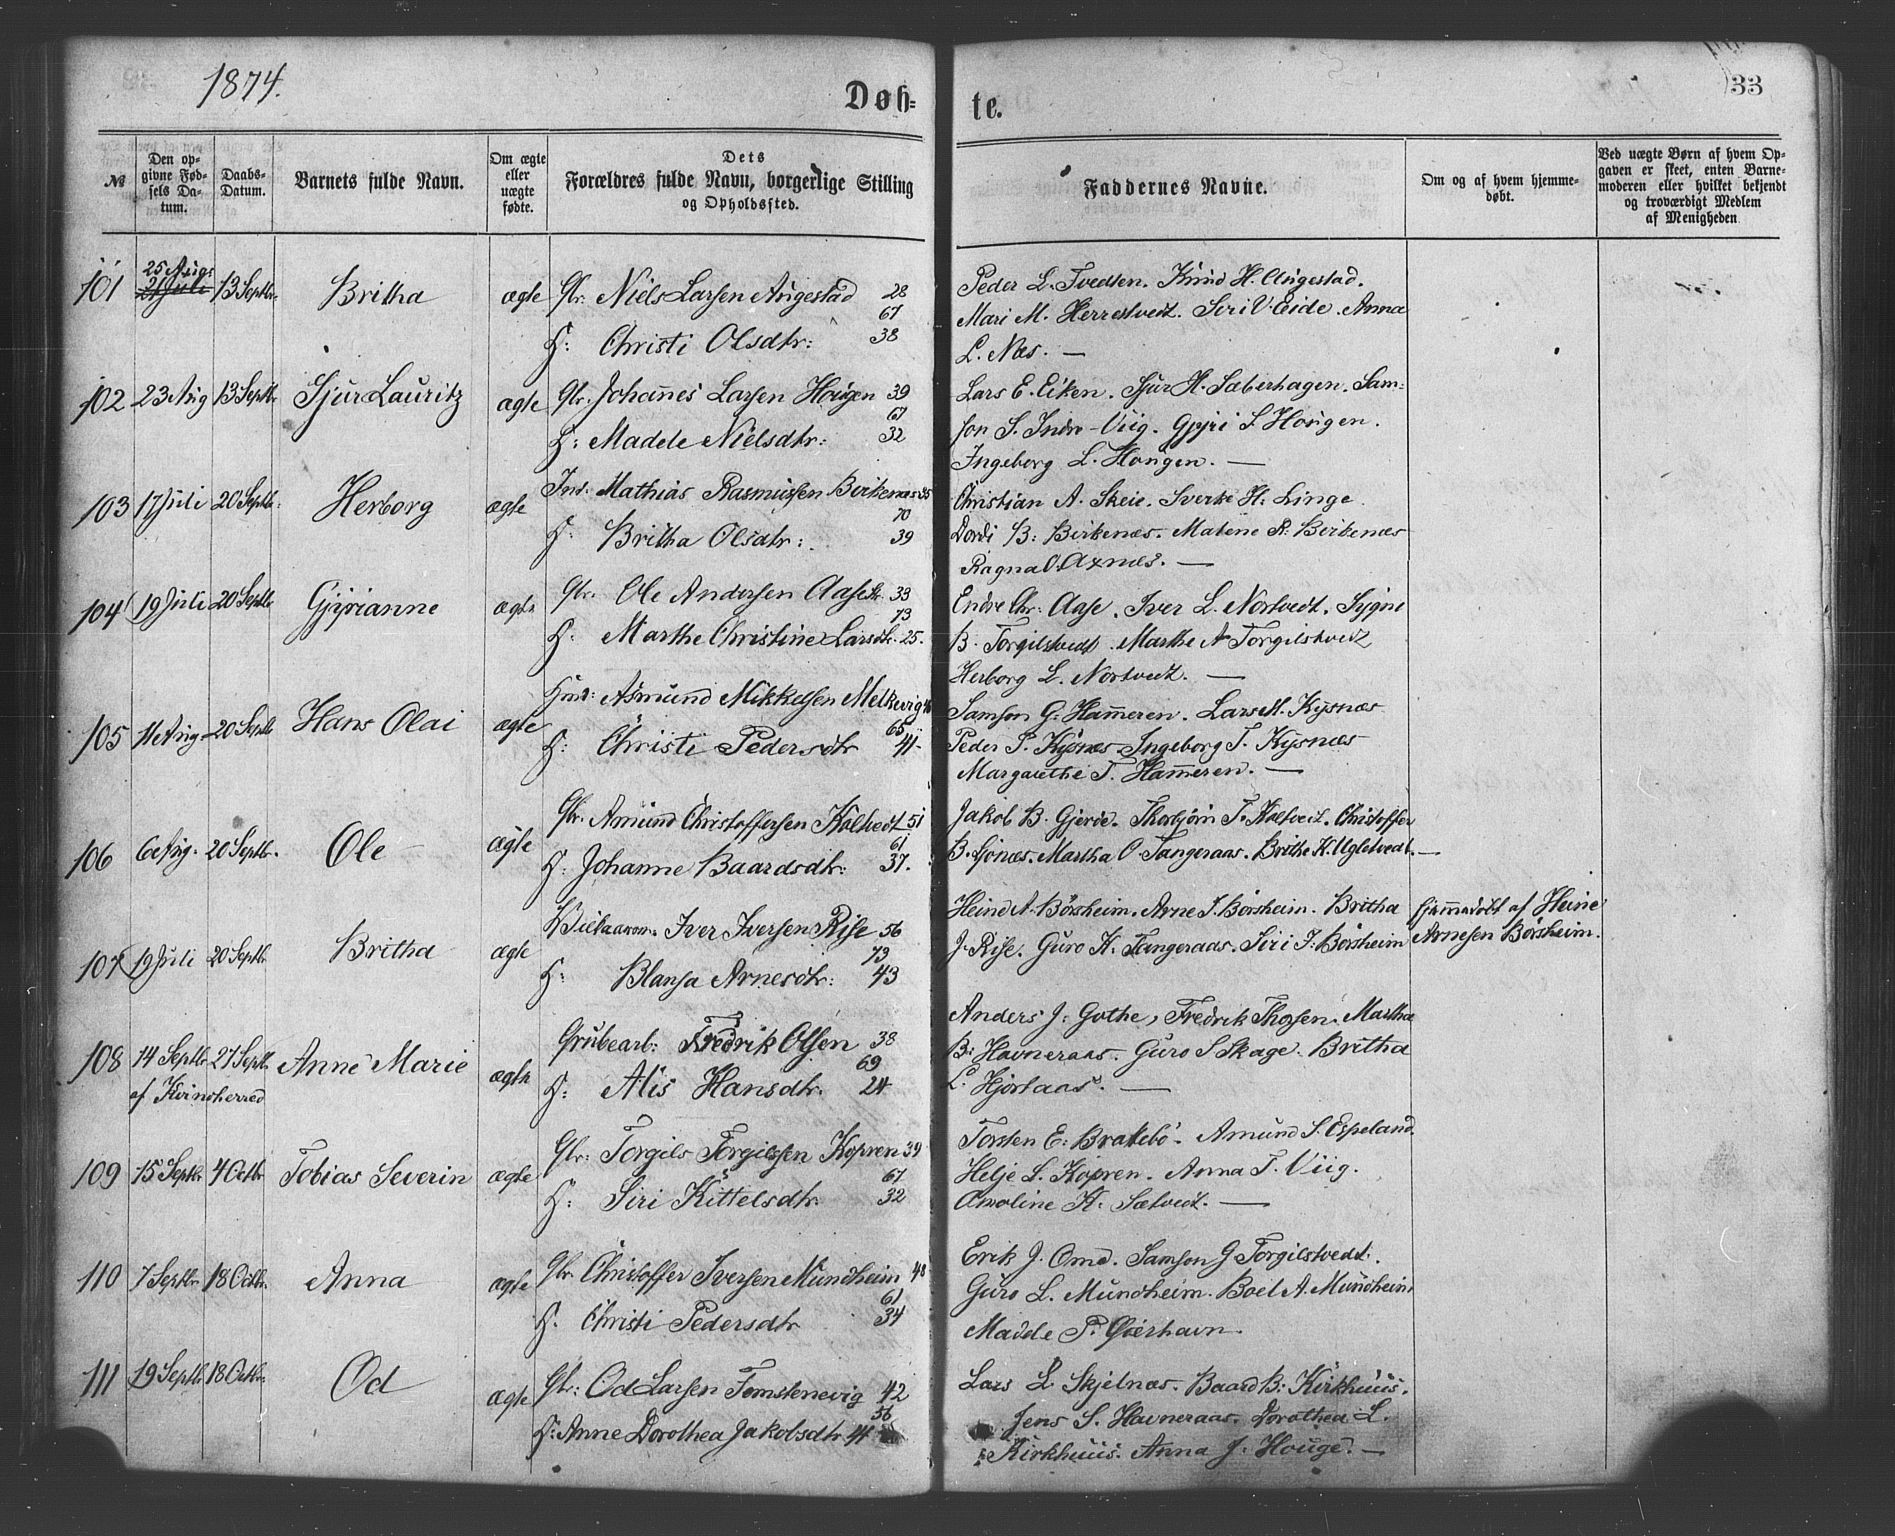 1874.
Døb-
te.
33
№
Den op-
givne Fød-
sels Da-
tum.
Daabs-
Datum.
Barnets fulde Navn.
Om ægte
eller
uægte
fødte.
Dets
Forældres fulde Navn, borgerlige Stilling
og Opholdssted.
Faddernes Navne.
Om og af hvem hjemme-
døbt.
Ved uægte Børn af hvem Op-
gaven er skeet, enten Barne-
moderen eller hvilket bekjendt
og troværdigt Medlem
af Menigheden
101 25 Aug: 21 Juli 13 Septbr. Britha ægte Gbr: Niels Larsen Augestad 28
67
H: Christi Olsdtr: 38
Peder L. Tvedten. Knud H. Augestad.
Mari M. Herrestvedt. Siri V. Eide. Anna
L. Næs. —
102 23 Aug 13 Septbr Sjur Lauritz ægte Gbr: Johannes Larsen Hougen 39
67
H: Madele Nielsdtr: 32
Lars E. Eiken. Sjur H. Sæberhagen. Sam-
son S. Indre-Viig. Gjyri S Hougen.
Ingeborg L. Hougen. —
103 17 Juli 20 Septbr. Herborg ægte Ins: Mathias Rasmussen Birkenæs 35
70
H: Britha Olsdtr: 39
Christian A. Skeie. Sverke H. Linge
Dordi B: Birkenæs. Malene R. Birkenæs
Ragna O. Axnæs. —
104 19 Juli 20 Septbr Gjyrianne ægte Gbr. Ole Andersen Aase 33
73
H. Marthe Christine Larsdtr. 25.
Endre Chr: Aase. Iver L. Nortvedt. Sygni
B. Torgilstvedt. Marthe A Torgilstvedt
Herborg L. Nortvedt. —
105 11 Aug 20 Septbr Hans Olai ægte Huus: Asmund Mikkelsen Melkevig
65
H: Christi Pedersdtr 41
Samson G. Hammeren. Lars M. Kysnæs
Peder S. Kysnæs. Ingeborg T. Kysnæs
Margarethe T. Hammeren. —
106 6 Aug. 20 Septbr. Ole ægte Gbr. Amund Christoffersen Kaltvedt 51
61
H: Johanne Baardsdtr: 37.
Jakob B. Gjeroe. Thorbjörn T. Kaltvedt. Christoffer
B. Sjonæs. Martha O Tangeraas. Brithe K. Ugletvedt. —
107 19 Juli 20 Septbr. Britha ægte Iver Iversen Rise 56
73
H: Blansa Arnesdtr: 43
Heine A. Börsheim. Arne I. Börsheim. Britha
J. Rise. Guro H. Tangeraas. Siri I. Börsheim
hjemmedöbt af Heine
Arnesen Börsheim.
108 14 Septbr 27 Septbr. Anne Marie ægte Grubearb: Fredrik Olsen 38
af Kvindherred
69
H: Alis Hansdtr. 24
Anders J: Guthe, Fredrik Thorsen. Martha
B: Havneraas. Guro S Skage. Britha
L. Hjortaas. —
109 15 Septbr 4 Octbr Tobias Severin ægte Gbr: Torgils Torgilssen Kopren 39
67
H: Siri Kittelsdtr. 32
Torsten E: Brakebö. Amund S. Espeland
Helje L. Kopren. Anna T. Viig.
Omoline K. Sætvedt. —
110 7 Septbr. 18 Octbr. Anna ægte Gbr. Christoffer Iversen Mundheim 48
61
H. Christi Pedersdtr 34
Erik J. Omd. Samson G Torgilstvedt.
Guro L. Mundheim. Boel A. Mundheim
Madele P. Öierhavn.
111 19 Septbr. 18 Octbr. Od ægte Gbr: Od Larsen Tomstenevig 42
56
H: Anne Dorothea Jakobsdtr 44
Lars L Skjelnæs. Baard B: Kirkhuus.
Jens S. Havneraas. Dorothea L.
Kirkhuus. Anna J. Houge. —